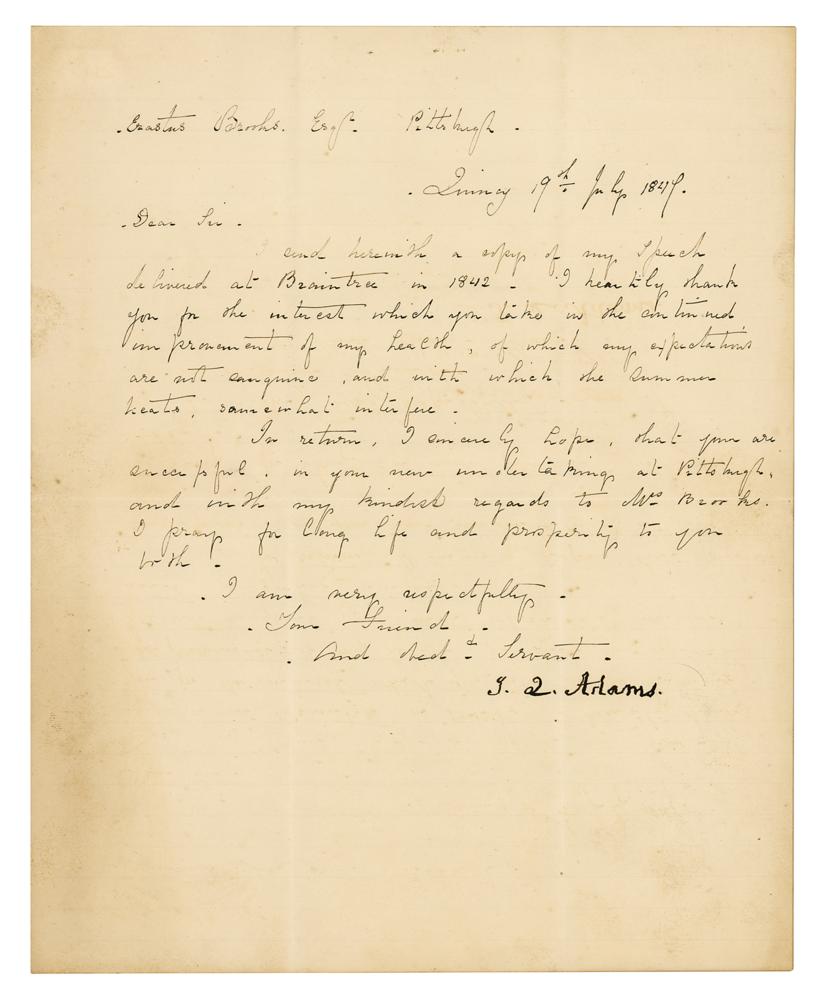 Erastus Brooks. Esqr. Pittsburgh.
Quincy 19th July 1847.
Dear Sir.
I send herewith a copy of my Speech
delivered at Braintree in 1842 - I heartily thank
you for the interest which you take in the continued
improvement of my health, of which my expectations
are not sanguine, and with which the summer
heats, somewhat interfere.
In return, I sincerely hope, that you are
successful. in your new undertakings at Pittsburgh,
and with my kindest regards to Mrs Brooks.
I pray for long life and prosperity to you
both.
I am very respectfully.
Your Friend.
And obedt Servant.
J. Q. Adams.